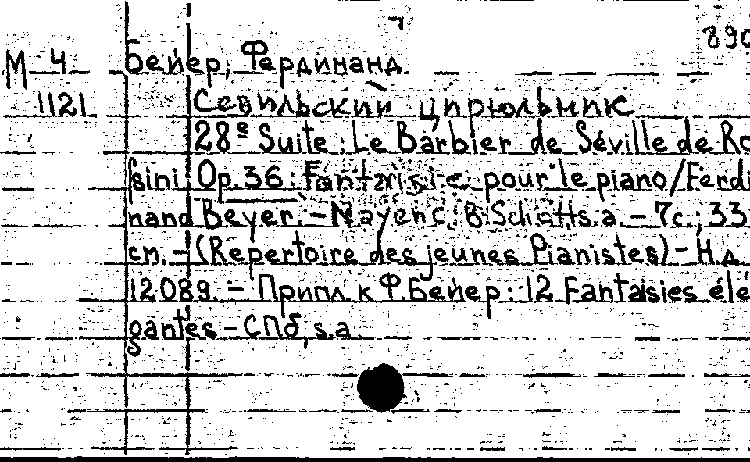 890
М-4 Бейер, Фердинанд
1121 Севильский цирюльник
28e Suite: Le Barbier de Séville de Ro
ssini Op. 36: Fantaisie pour le piano/Ferdi
nand Beyer. - Mayenc, B. Schotts. a. - 7c.; 33
cm. - (Repertoire des jeunes Pianistes) - Н.д.
12089. - Припл. к Ф. Бейер: 12 Fantaisies élé
gantes - СПб, s.a.